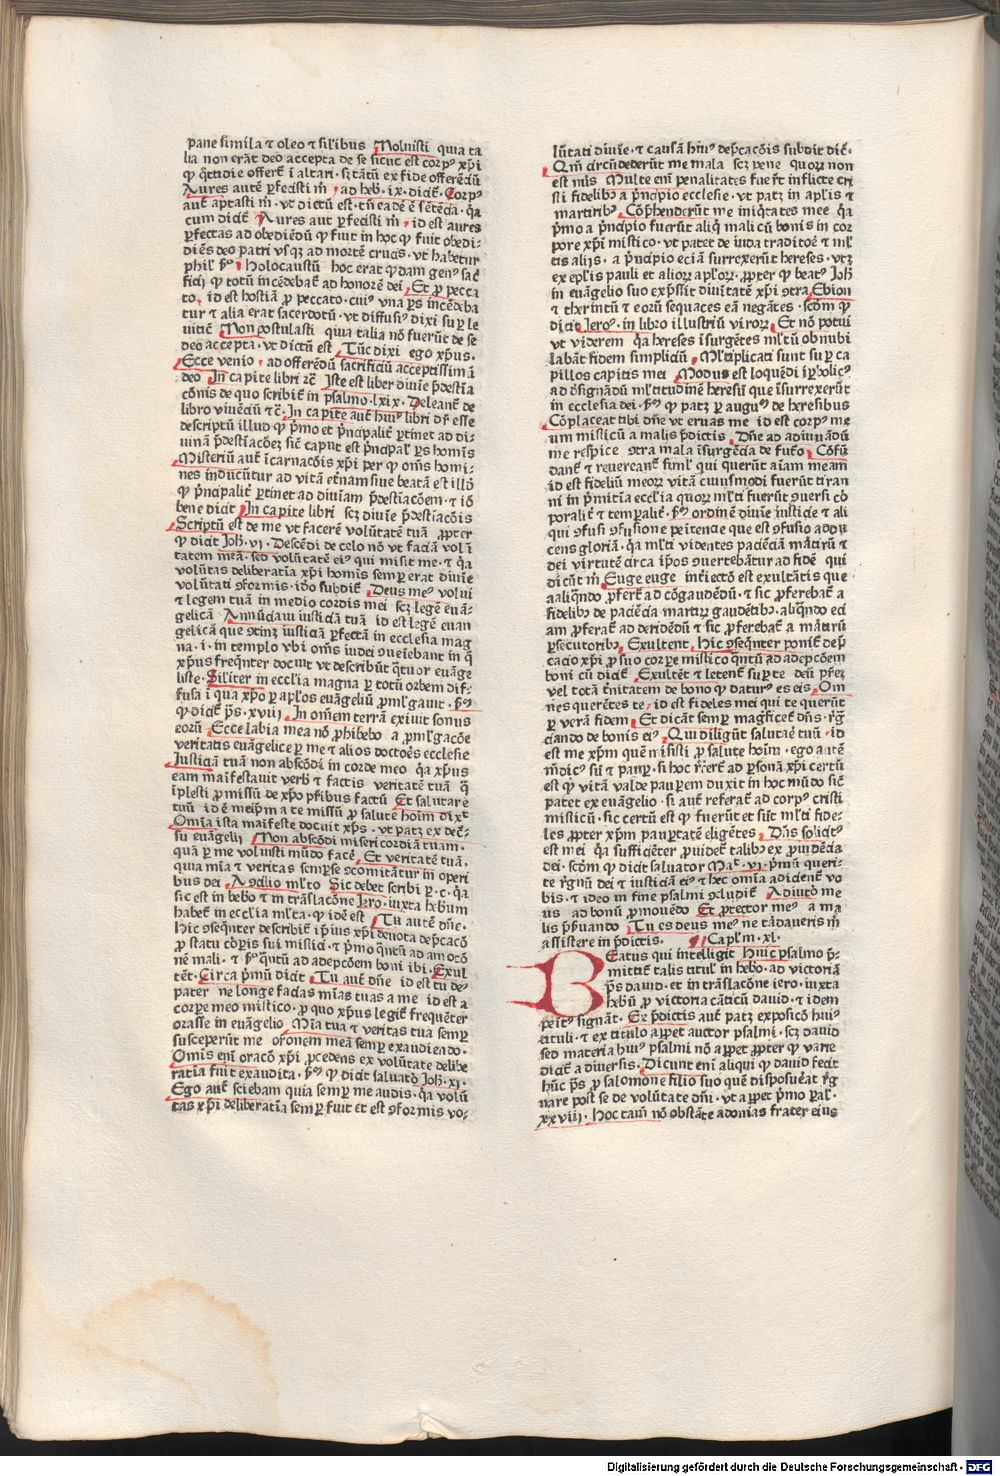 pane simila ⁊ oleo ⁊ silibus Noluisti quia ta
lia non erāt deo accepta de se sicut est corpꝰ xp̄i
Aures autē ꝑfecisti m̄ ad heb. ix. dicit̄. Corpꝰ
cum dicit̄ Aures aut ꝑfecisti m̄ id est aures
ꝑfectas ad obediēdū ꝙ fuit in hoc ꝙ fuit obedi-
diēs deo patri vsqꝫ ad mortē crucis. vt habetur
phil̄ Holocaustū hoc erat quoddam genꝰ
ficij ꝙ totū incēdebat̄ ad honorē dei Et ꝓ pecca
to id est hostiā ꝓ peccato cuiꝰ vna ꝑs incēdeba
tur ⁊ alia erat sacerdotū. vt diffusiꝰ dixi suꝑ le
uitic̄ Non postulasti quia talia nō fuerūt de se
deo accepta. vt dictū est Tūc dixi ego xp̄us.
Ecce venio ad offerēdū sacrificiū acceptissimū
deo In capite libri ⁊c̄ Iste est liber diuīe p̄destīa
cōnis de quo scribit̄ in psalmo. lxix. Deleant̄ de
libro viuēciū ⁊c̄. In capite aut̄ huiꝰ libri dr̄ esse
descriptū illud ꝙ p̄mo et p̄ncipalit̄ ꝑtinet ad di-
uinā p̄destīacōeꝫ sic̄ caput est p̄ncipal̄ ꝑs homīs
Misteriū aut̄ īcarnacōis xp̄i per ꝙ om̄s homi-
nes inducūtur ad vitā et̄nam siue beatā est illō
ꝙ p̄ncipalit̄ ꝑtinet ad diuīam p̄destīacōem ⁊ iō
bene dicit In capite libri scꝫ diuīe p̄destīacōis
Scriptū est de me vt facerē volūtatē tuā ꝓpter
ꝙ dicit Joh̄. vi. Descēdi de celo nō vt faciā volū
tatem meā. sed volūtatē eiꝰ qui misit me ⁊ q̄a
volūtas deliberatiā xp̄i homīs semꝑ erat diuīe
volūtati ꝯformis. idō subdit̄ Deus meꝰ volui
⁊ legem tuā in medio cordis mei scꝫ legē euā-
gelicā Annūciaui iusticiā tuā id est legē euan
gelicā que ꝯtinꝫ iusticiā ꝑfectā in ecclesia mag
na. i. in templo vbi om̄s iudei ꝯueiebant in q̄
xp̄us freqn̄ter docuit vt describūt q̄tuor euāge
liste. Sil̄iter in ecclīa magna ꝑ totū orbem dif-
fusa
ꝙ dicit̄ p̄s. xvij In om̄em terrā exiuit sonus
eorū Ecce labia mea nō ꝓhibebo a ꝓml̄gacōe
veritatis euāgelice ꝑ me ⁊ alios doctōēs ecclesie
Iusticiā tuā non abscōdi in corde meo q̄a xp̄us
eam maīfestauit verbis ⁊ factis veritatē tuā q̄
īplesti ꝓmissū de xp̄o ꝑfibus factū Et salutare
tuū id ē meip̄m a te missū ꝓ salute hoīm
Om̄ia ista maīfeste docuit xp̄s. vt patꝫ ex
su euāgelij Non abscōdi misericordiā tuam.
quā ꝑ me voluisti mūdo facē Et veritatē tuā.
quia mīa ⁊ veritas semꝑ se ꝯcomitātur in operi
bus dei A ꝯcilio ml̄to Sic debet scribi ꝑ. c. q̄a
sic est in hebo ⁊ in trāslacōne Jero. iuxta hebum
habet̄ in ecclīa ml̄ta. ꝙ idē est Tu autē dn̄e.
Hic ꝯseqn̄ter describit̄ ip̄ius xp̄i deuota dep̄cacō
nē mali. ⁊ ꝙn̄tū ad adepcōem boni ibi. Exul
tēt. Circa p̄mū dicit Tu aut̄ dn̄e id est tu dēꝰ
pater ne longe facias mīas tuas a me id est a
corꝑe meo mistico. ꝓ quo xp̄us legit̄ frequēter
orasse in euāgelio. Mīa tua ⁊ veritas tua semꝑ
susceperūt me oronem meā semꝑ exaudiendo.
Om̄is em̄ oracō xp̄i ꝓcedens ex volūtate delibe
ratīa fuit exaudita. ꝙ dicit saluatō Joh̄. xi.
Ego aut̄ sciebam quia semꝑ me audis. q̄a volū
tas xp̄i deliberatīa semꝑ fuit et est ꝯformis vo-
lūtati diuīe. ⁊ causā huiꝰ dep̄cacōis subdit dic̄.
Qm̄ circūdederūt me mala scꝫ pene quoꝝ non
est nūs Multe em̄ penalitates fuer̄t inflicte cri
sti fidelibꝰ a p̄ncipio ecclesie. vt patꝫ in apl̄is ⁊
martiribꝰ Cōp̄henderūt me iniq̄tates mee q̄a
p̄mo a p̄ncipio fuerūt aliqͥ mali cū bonis in cor
pore xp̄i mistico. vt patet de iuda traditore ⁊ ml̄
tis alijs. a p̄ncipio eciā surrexerūt hereses. vtꝫ
ex ep̄lis pauli et alioꝝ apl̄oꝝ. ꝓpter ꝙ beatꝰ Joh̄
in euāgelio suo exp̄ssit diuitatē xp̄i ꝯtra Ebion
⁊ cherintū ⁊ eorū sequaces eā negātes. scd̄m ꝙ
dicit Jeroꝰ. in libro illustriū viroꝝ Et nō potui
vt viderem q̄a hereses īsurgētes ml̄tū obnubi
labāt fidem simpliciū Ml̄tiplicati sunt suꝑ ca
pillos capitis mei Modus est loquēdi iꝑbolicꝰ
ad ꝯsignādū ml̄titudinē heresiū que īsurrexerūt
in ecclesia dei. ꝙ patꝫ ꝑ augꝰ de heresibus
Cōplaceat tibi dn̄e vt eruas me id est corpꝰ me
um misticū a malis p̄dictis Dn̄e ad adiuuādū
me respice ꝯtra mala īsurgēcia de fut̄o Cōfū
dant̄ ⁊ reuereant̄ siml̄ qui querūt aīam meam
id est fideliū meoꝝ vitā cuiusmodi fuerūt tiran
ni in p̄mitīa ecclīa quoꝝ ml̄ti fuerūt ꝯuersi cō
qui ꝯfusi ꝯfusione penitencie que est ꝯfusio addu
cens gloriā. q̄a ml̄ti videntes paciēciā mr̄tirū ⁊
dei virtutē circa ip̄os ꝯuertebātur ad fidē qui
dicūt m̄ Euge euge interiectō est exultātis que
aliqn̄do ꝓfert̄ ad cōgaudēdū. ⁊ sic ꝓferebat̄ a
fidelibꝰ de paciēcia martiꝝ gaudētibꝰ. aliqn̄do eci
am ꝓferat̄ ad deridēdū ⁊ sic ꝓferebat̄ a mr̄tirū
ꝑsecutoribꝰ Exultent Hic ꝯseqn̄ter ponit̄ dep̄
cacio xp̄i ꝓ suo corꝑe mistico ꝙn̄tū ad adepcōem
boni cū dicit̄ Exultēt ⁊ letent̄ suꝑ te
vel totā t̄nitatem de bono ꝙ daturꝰ es eis Om
nes querētes te id est fideles mei qui te querūt
ꝑ verā fidem Et dicāt semꝑ magficet̄ dn̄s
ciando de bonis eiꝰ Qui diligūt salutaē tuū id
est me xp̄m quē misisti ꝓ salute hoīm. ego autē
mēdicꝰ sū ⁊ pauꝑ. si hoc ad ꝑsonā xp̄i certū
est ꝙ vitā valde pauꝑem duxit in hoc mūdo sic̄
patet ex euāgelio. si aut̄ referat̄ ad corpꝰ cristi
misticū. sic certū est ꝙ fuerūt et sūt ml̄ti fide-
les ꝓpter xp̄m pauꝑtatē eligētes Dn̄s solicitꝰ
est mei q̄a sufficiēter ꝓuidet̄ talibꝰ ex ꝓuidēcia
dei. scd̄m ꝙ dicit saluator Mat̄. vi. p̄mū queri-
te rḡnū dei ⁊ iusticiā eiꝰ ⁊ hec om̄ia adicient̄ vo
bis. ⁊ ideo in fine psalmi ꝯcludit̄ Adiutō me
us ad bonū ꝓmouēdo Et ꝓtector meꝰ a ma
lis p̄s̄uando Tu es deus meꝰ ne tādaueris m̄
assistere in p̄dictis. Capl̄m. xl.
Beatus qui intelligit Huic psalmo p̄-
mittit̄ talis titul̄ in hebo. ad victoriā
p̄s dauid. et in trāslacōne iero. iuxta
hebū ꝓ victoria cāticū dauid. ⁊ idem
penitꝰ signāt. Ex p̄dictis aut̄ patꝫ exposicō huiꝰ
tituli. ⁊ ex titulo apꝑet auctor psalmi. scꝫ dauid
sed materia huiꝰ psalmi nō apꝑet ꝓpter ꝙ varie
dicit̄ a diuersis. Dicunt em̄ aliqui ꝙ dauid fecit
hūc p̄s ꝓ salomone filio suo quē disposuerat
nare post se de volūtate dn̄i. vt apꝑet p̄mo ꝑal̄.
xxviij. Hoc tam̄ nō obstāte adonias frater eius
Digitalisierung gefördert durch die Deutsche Forschungsgemeinschaft - DFG